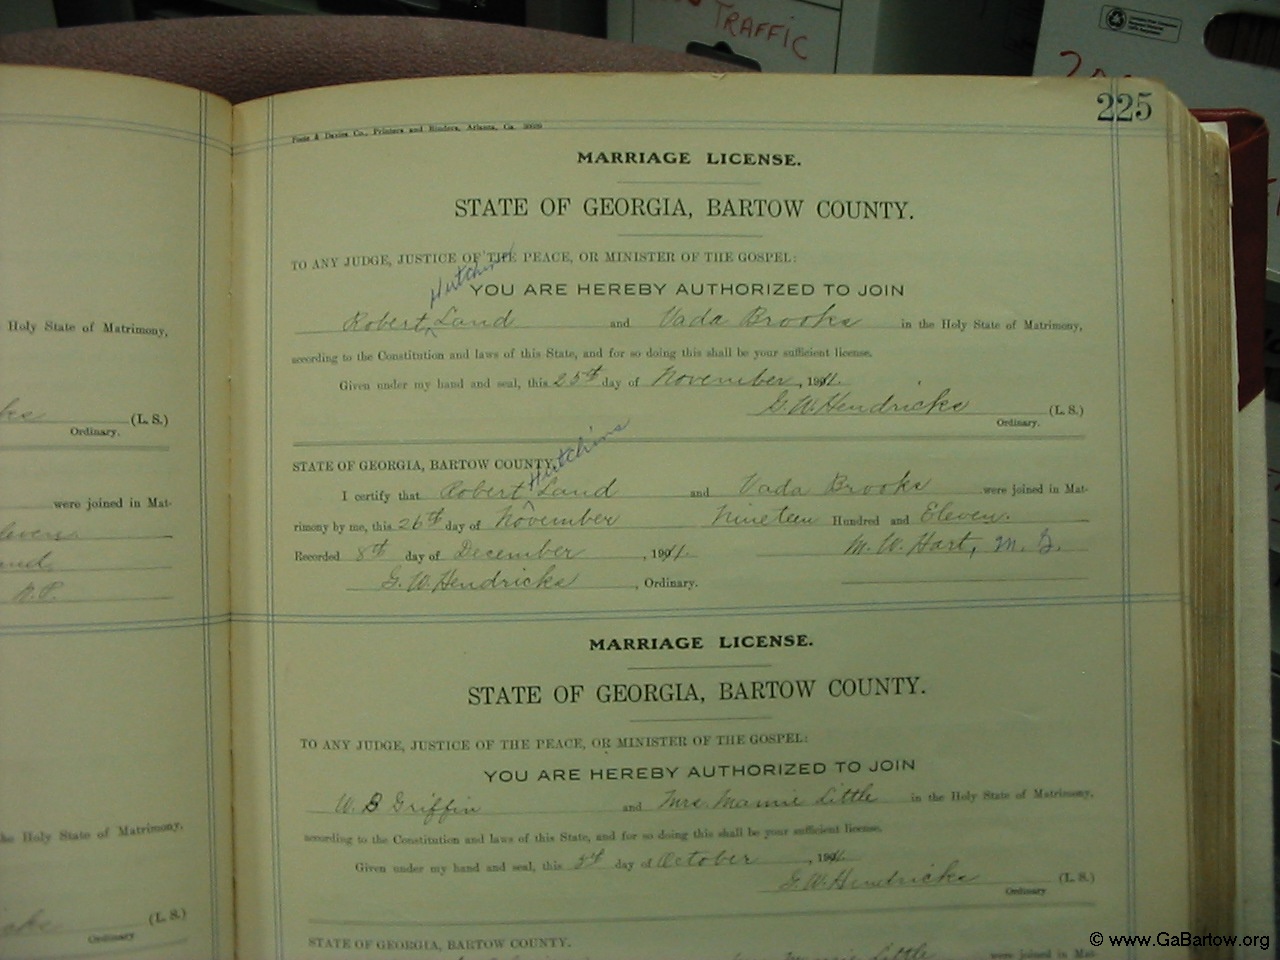 TRAFFIC
225
Foote & Davies Co., Printers and Binders, Atlanta, Ga.
MARRIAGE LICENSE.
STATE OF GEORGIA, BARTOW COUNTY.
TO ANY JUDGE, JUSTICE OF THE PEACE, OR MINISTER OF THE GOSPEL:
Hutchins
YOU ARE HEREBY AUTHORIZED TO JOIN
Robert ^ Land and Vada Brooks in the Holy State of Matrimony,
according to the Constitution and laws of this State, and for so doing this shall be your sufficient license.
Given under my hand and seal, this 25th day of November, 1911.
G. W. Hendricks (L. S.)
Ordinary.
Hutchins
STATE OF GEORGIA, BARTOW COUNTY.
I certify that Robert ^ Land and Vada Brooks were joined in Mat-
rimony by me, this 26th day of November Nineteen Hundred and Eleven.
Recorded 8th day of December, 1911. M. W. Hart, M. G.
G. W. Hendricks, Ordinary.
MARRIAGE LICENSE.
STATE OF GEORGIA, BARTOW COUNTY.
TO ANY JUDGE, JUSTICE OF THE PEACE, OR MINISTER OF THE GOSPEL:
YOU ARE HEREBY AUTHORIZED TO JOIN
W. B Griffin and Mrs. Mamie Little in the Holy State of Matrimony,
according to the Constitution and laws of this State, and for so doing this shall be your sufficient license.
Given under my hand and seal, this day of October, 1911.
G. W. Hendricks (L. S.)
Ordinary
STATE OF GEORGIA, BARTOW COUNTY.
Mamie Little were joined in Mat-
Holy State of Matrimony,
(L. S.)
Ordinary.
were joined in Mat-
N. P.
the Holy State of Matrimony,
(L. S.)
Ordinary
© www.GaBartow.org